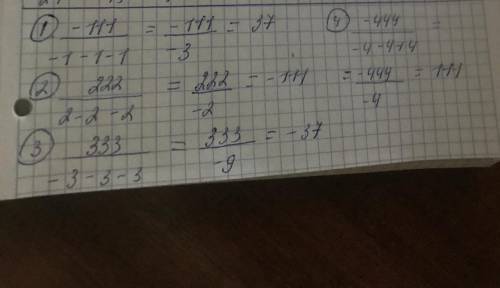 ① -111 / -1-1-1 = -111 / -3 = 37
② 222 / 2-2-2 = 222 / -2 = -111
③ 333 / -3-3-3 = 333 / -9 = -37
④ -444 / -4-4+4 =
= -444 / -4 = 111